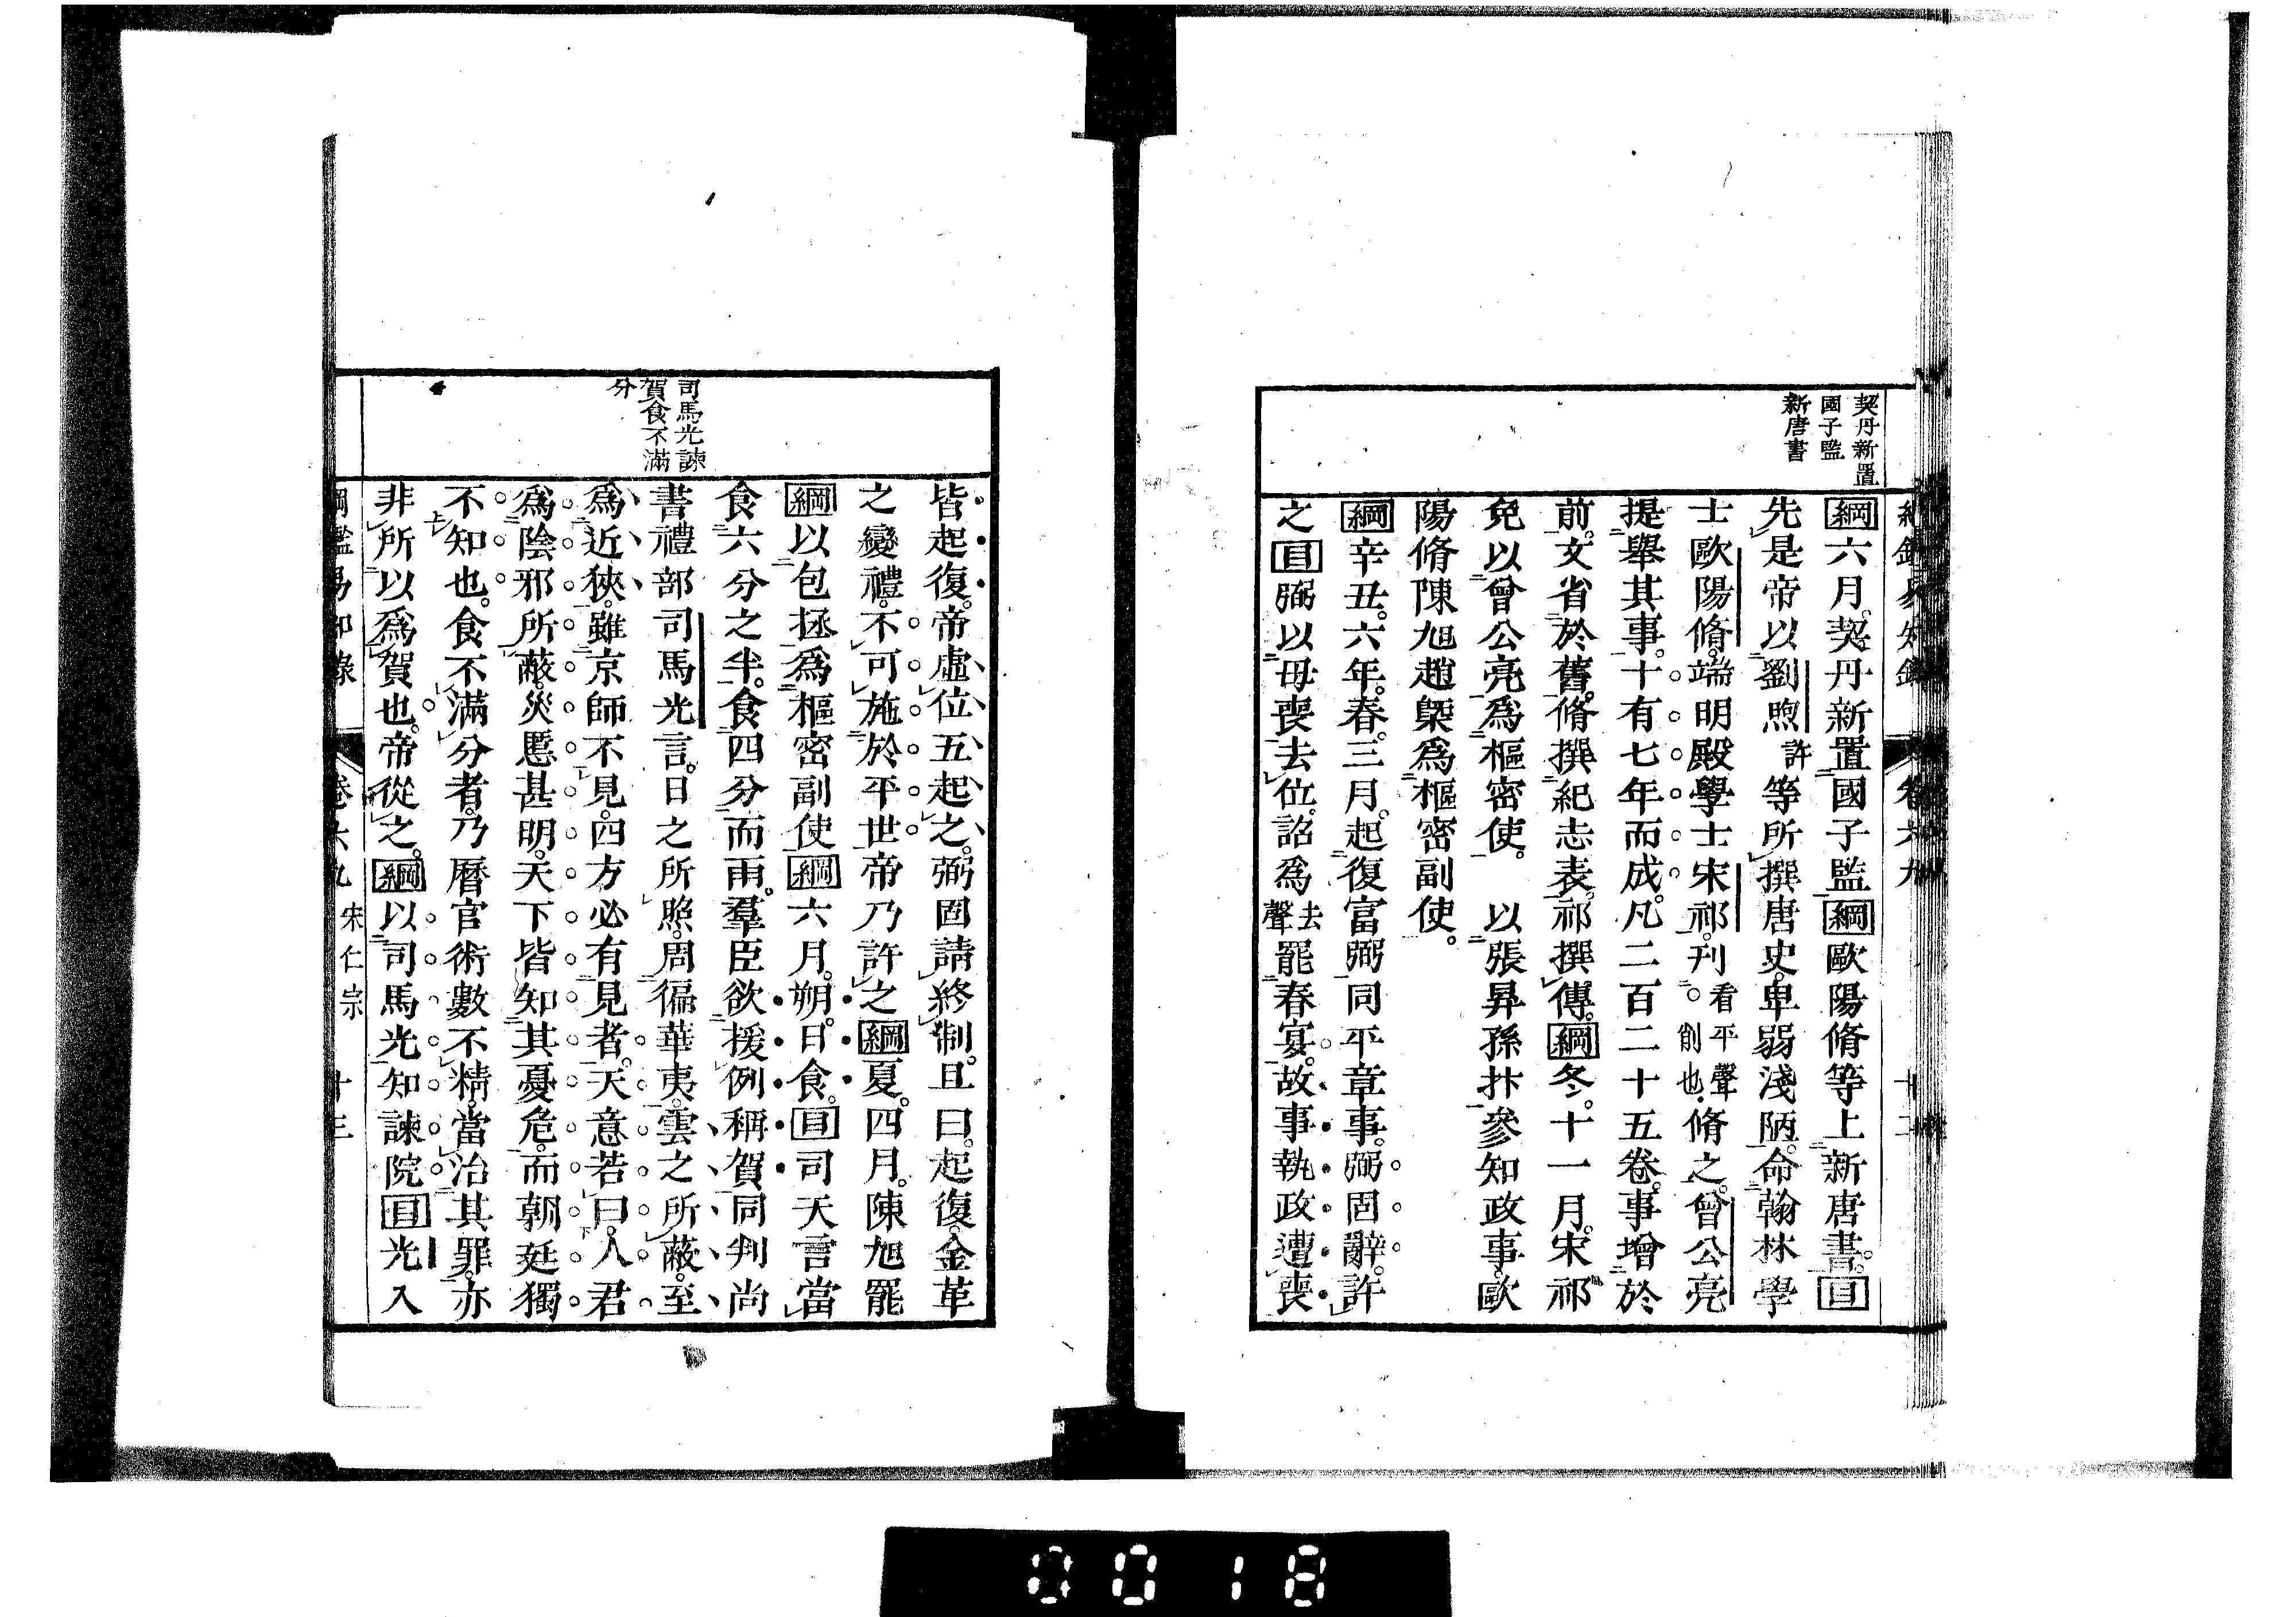 契丹新置
國子監
新唐書
綱六月。契丹新置國子監綱歐陽脩等上新唐書。目
先是帝以劉煦許等所撰唐史。卑弱淺陋。命翰林學
士歐陽脩。端明殿學士宋祁。刊看平聲。削也。脩之。曾公亮
提舉其事。十有七年而成。凡二百二十五卷。事增於
前。文省於舊。脩撰紀志表。祁撰傳。綱冬。十一月。宋祁
免以曾公亮爲樞密使。 以張昪孫抃參知政事。歐
陽脩陳旭趙槩爲樞密副使。
綱辛丑。六年。春。三月。起復富弼同平章事。弼固辭。許
之目弼以母喪去位。詔爲去聲罷春宴。故事執政遭喪
司馬光諫
賀食不滿
分
皆起復。帝虛位五起之。弼固請終制。且曰。起復。金革
之變禮。不可施於平世帝乃許之綱夏。四月。陳旭罷
綱以包拯爲樞密副使綱六月。朔。日食。目司天言當
食六分之半。食四分而雨。羣臣欲援例稱賀同判尚
書禮部司馬光言。日之所照。周徧華夷。雲之所蔽。至
爲近狹。雖京師不見。四方必有見者。天意若曰。人君
爲陰邪所蔽。災慝甚明。天下皆知其憂危。而朝廷獨
不知也。食不滿分者。乃曆官術數不精。當治其罪。亦
非所以爲賀也。帝從之。綱以司馬光知諫院目光入
綱鑑易知錄 卷六九 宋仁宗 十三